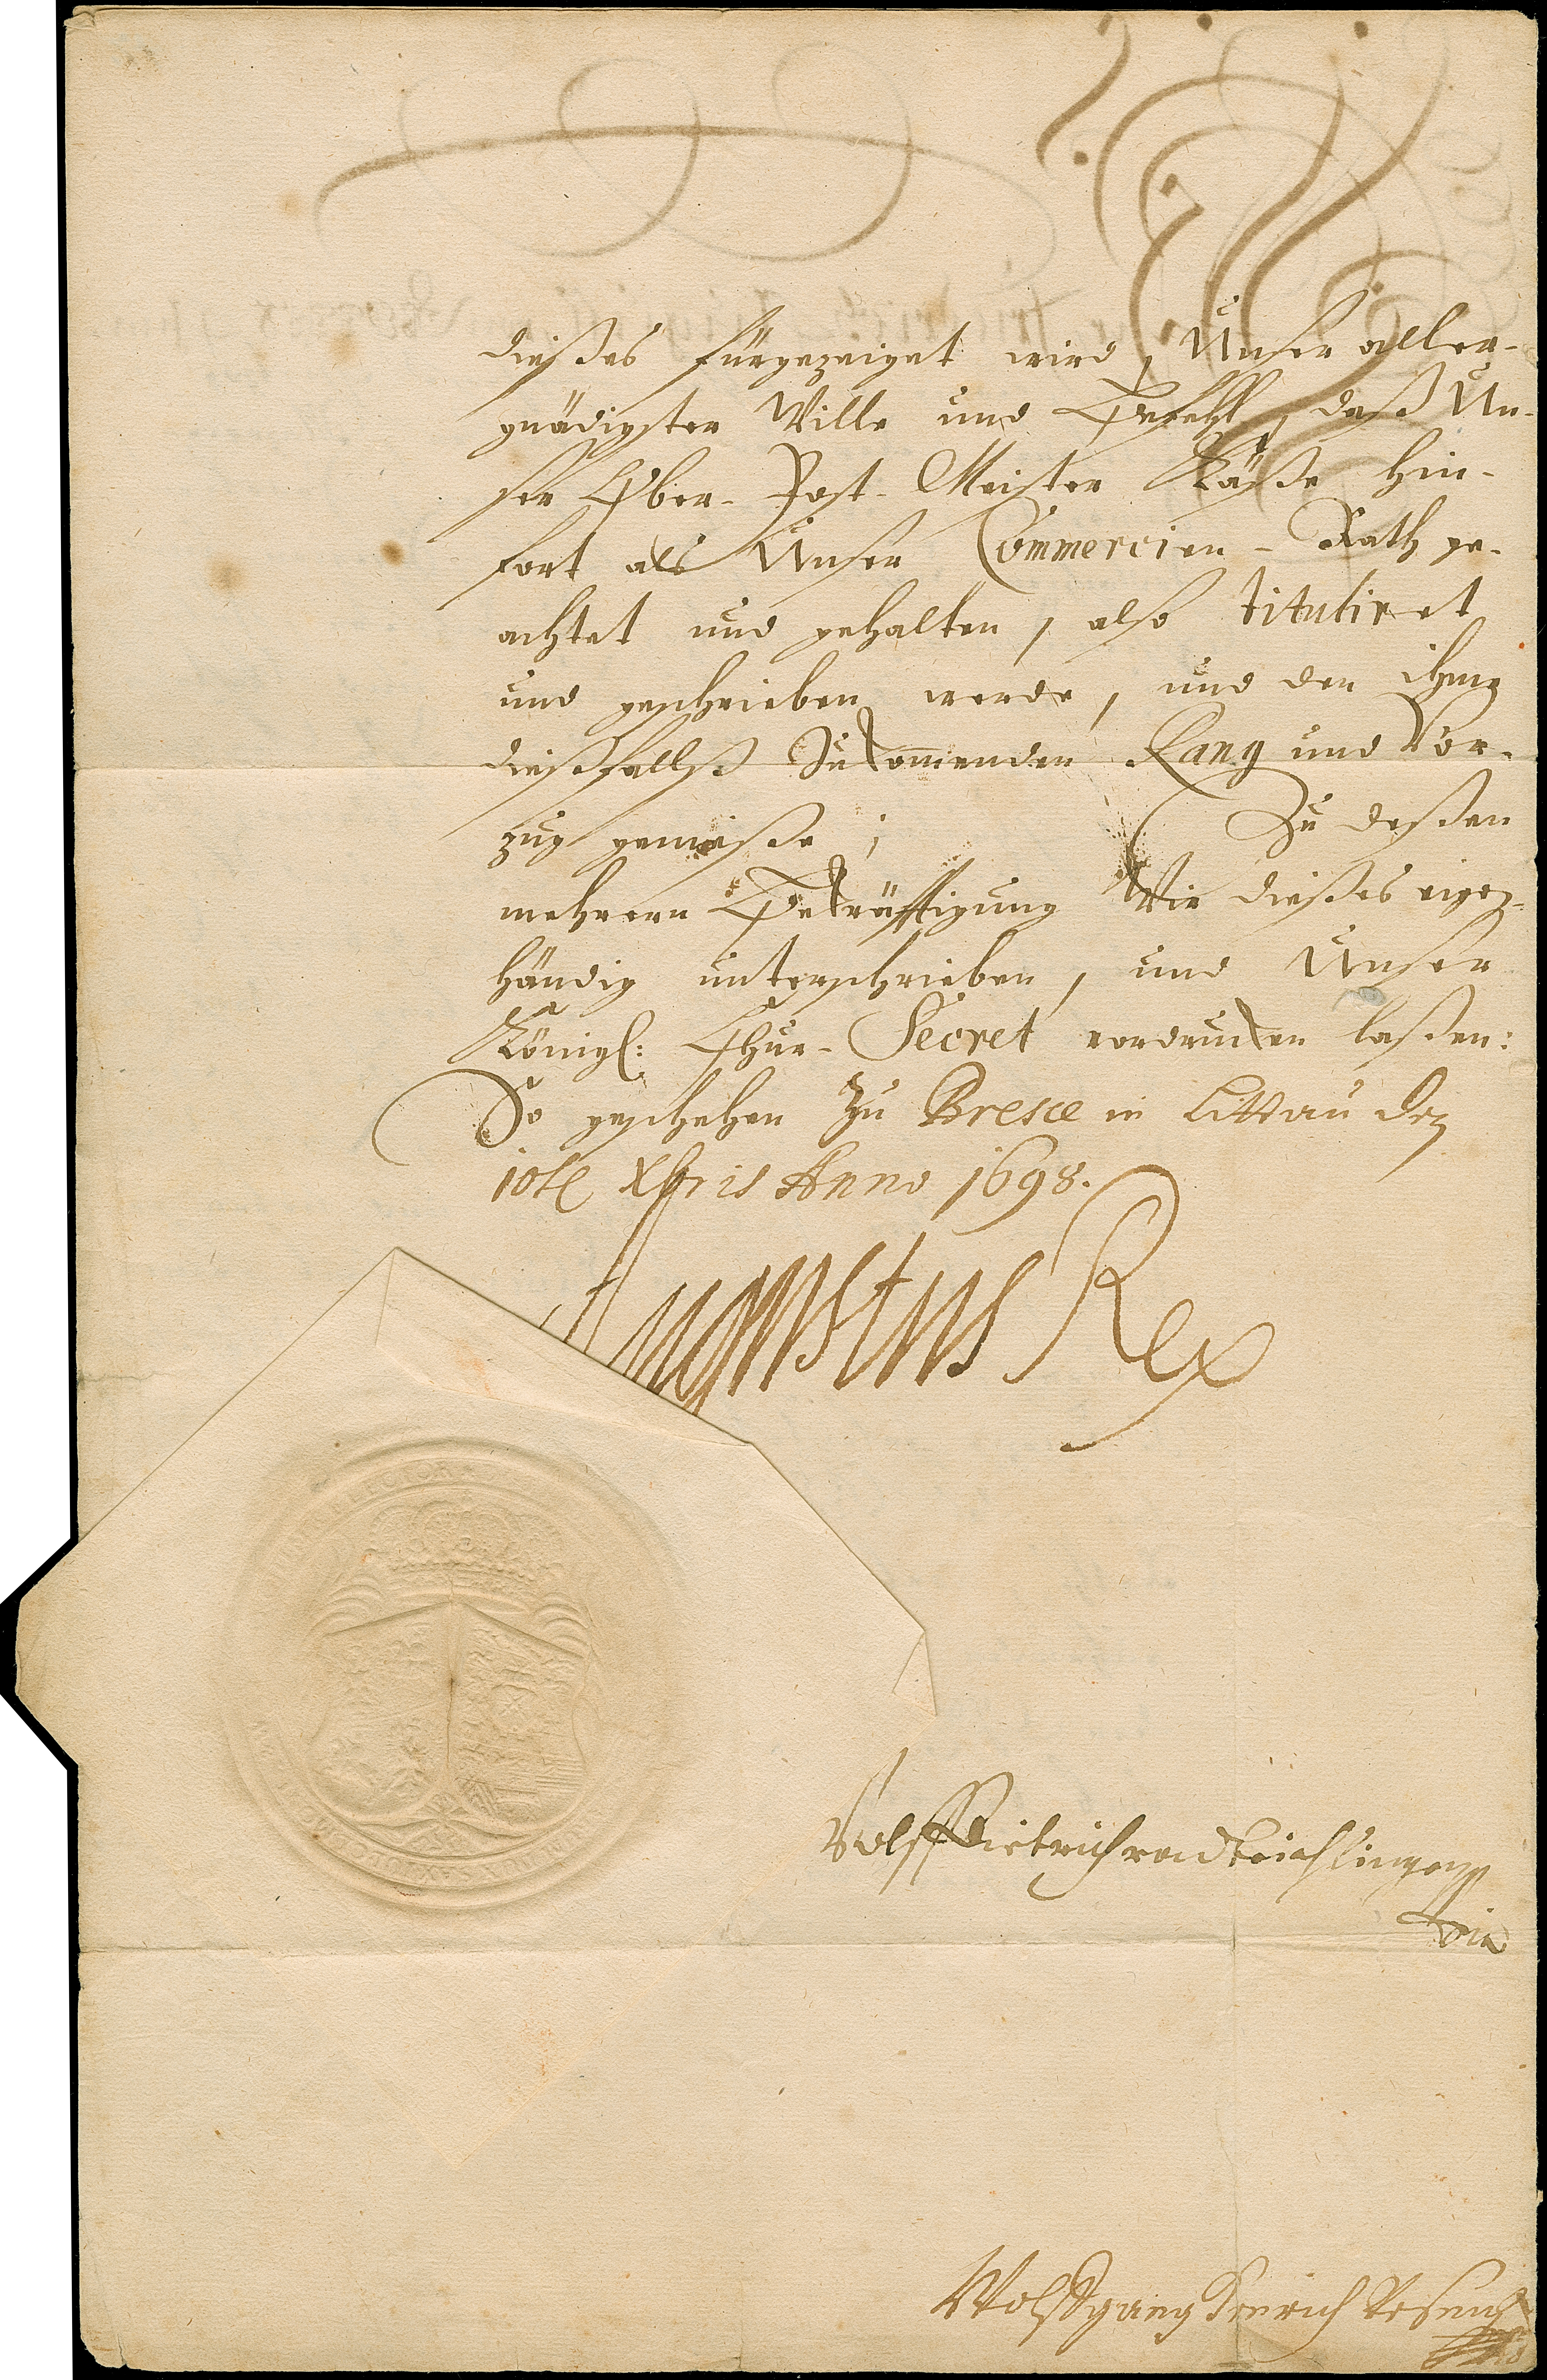 dießes fürgezeiget wird, Unser aller-
gnädigster Wille und Befehl, daß Un-
ser Ober-Post-Meister Käße hin-
fort als Unser Commercien-Rath ge-
achtet und gehalten, also tituliret
und geschrieben werde, und den ihme
dießfallß Zukommenden Rang und Vor-
zug genieße; Zu deßen
mehrern Bekräfftigung Wir dießes eigen-
händig unterschrieben, und Unser
Königl: Chur-Secret vordrucken laßen:
So geschehen zu Bresce in Littau den
10te Xbris Anno 1698.
Augustus Rex
Wolff Dietrich von Beichlingen
Wolffgang Heinrich